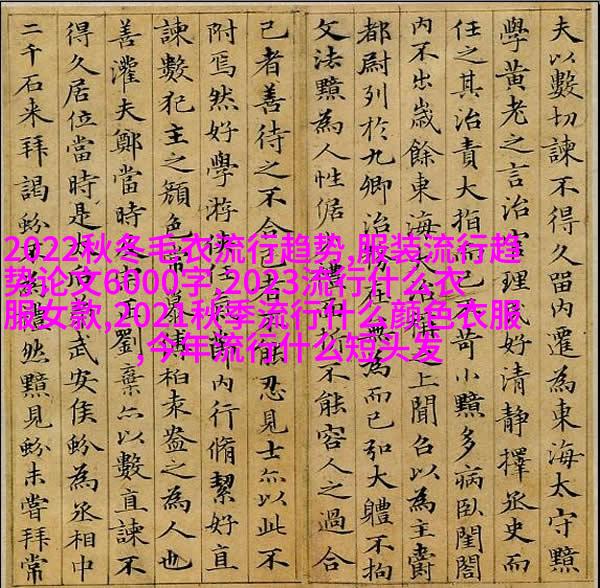 夫以數切諫不得久留內遷為東海太守黯
學黃老之言治官理民好清靜擇丞史而
任之其治責大指而已不苛小黯多病臥閨閤
內不出歲餘東海大治稱之上聞召以為主爵
都尉列於九卿治務在無為而已弘大體不拘
文法黯為人性倨折不能容人之過合
己者善待之不合己者不能忍見士亦以此不
附焉然好學游俠任氣節內行脩絜好直
諫數犯主之顏色常慕傅柏袁盎之為人也
善灌夫鄭當時劉棄亦以數直諫不
得久居位當時是太后弟武安侯蚡為丞相中
二千石來拜謁蚡不為禮然黯見蚡未嘗拜常
2022秋冬毛衣流行趋势,服装流行趋
势论文6000字,2023流行什么衣
服女款,2021秋季流行什么颜色衣服
,今年流行什么短头发